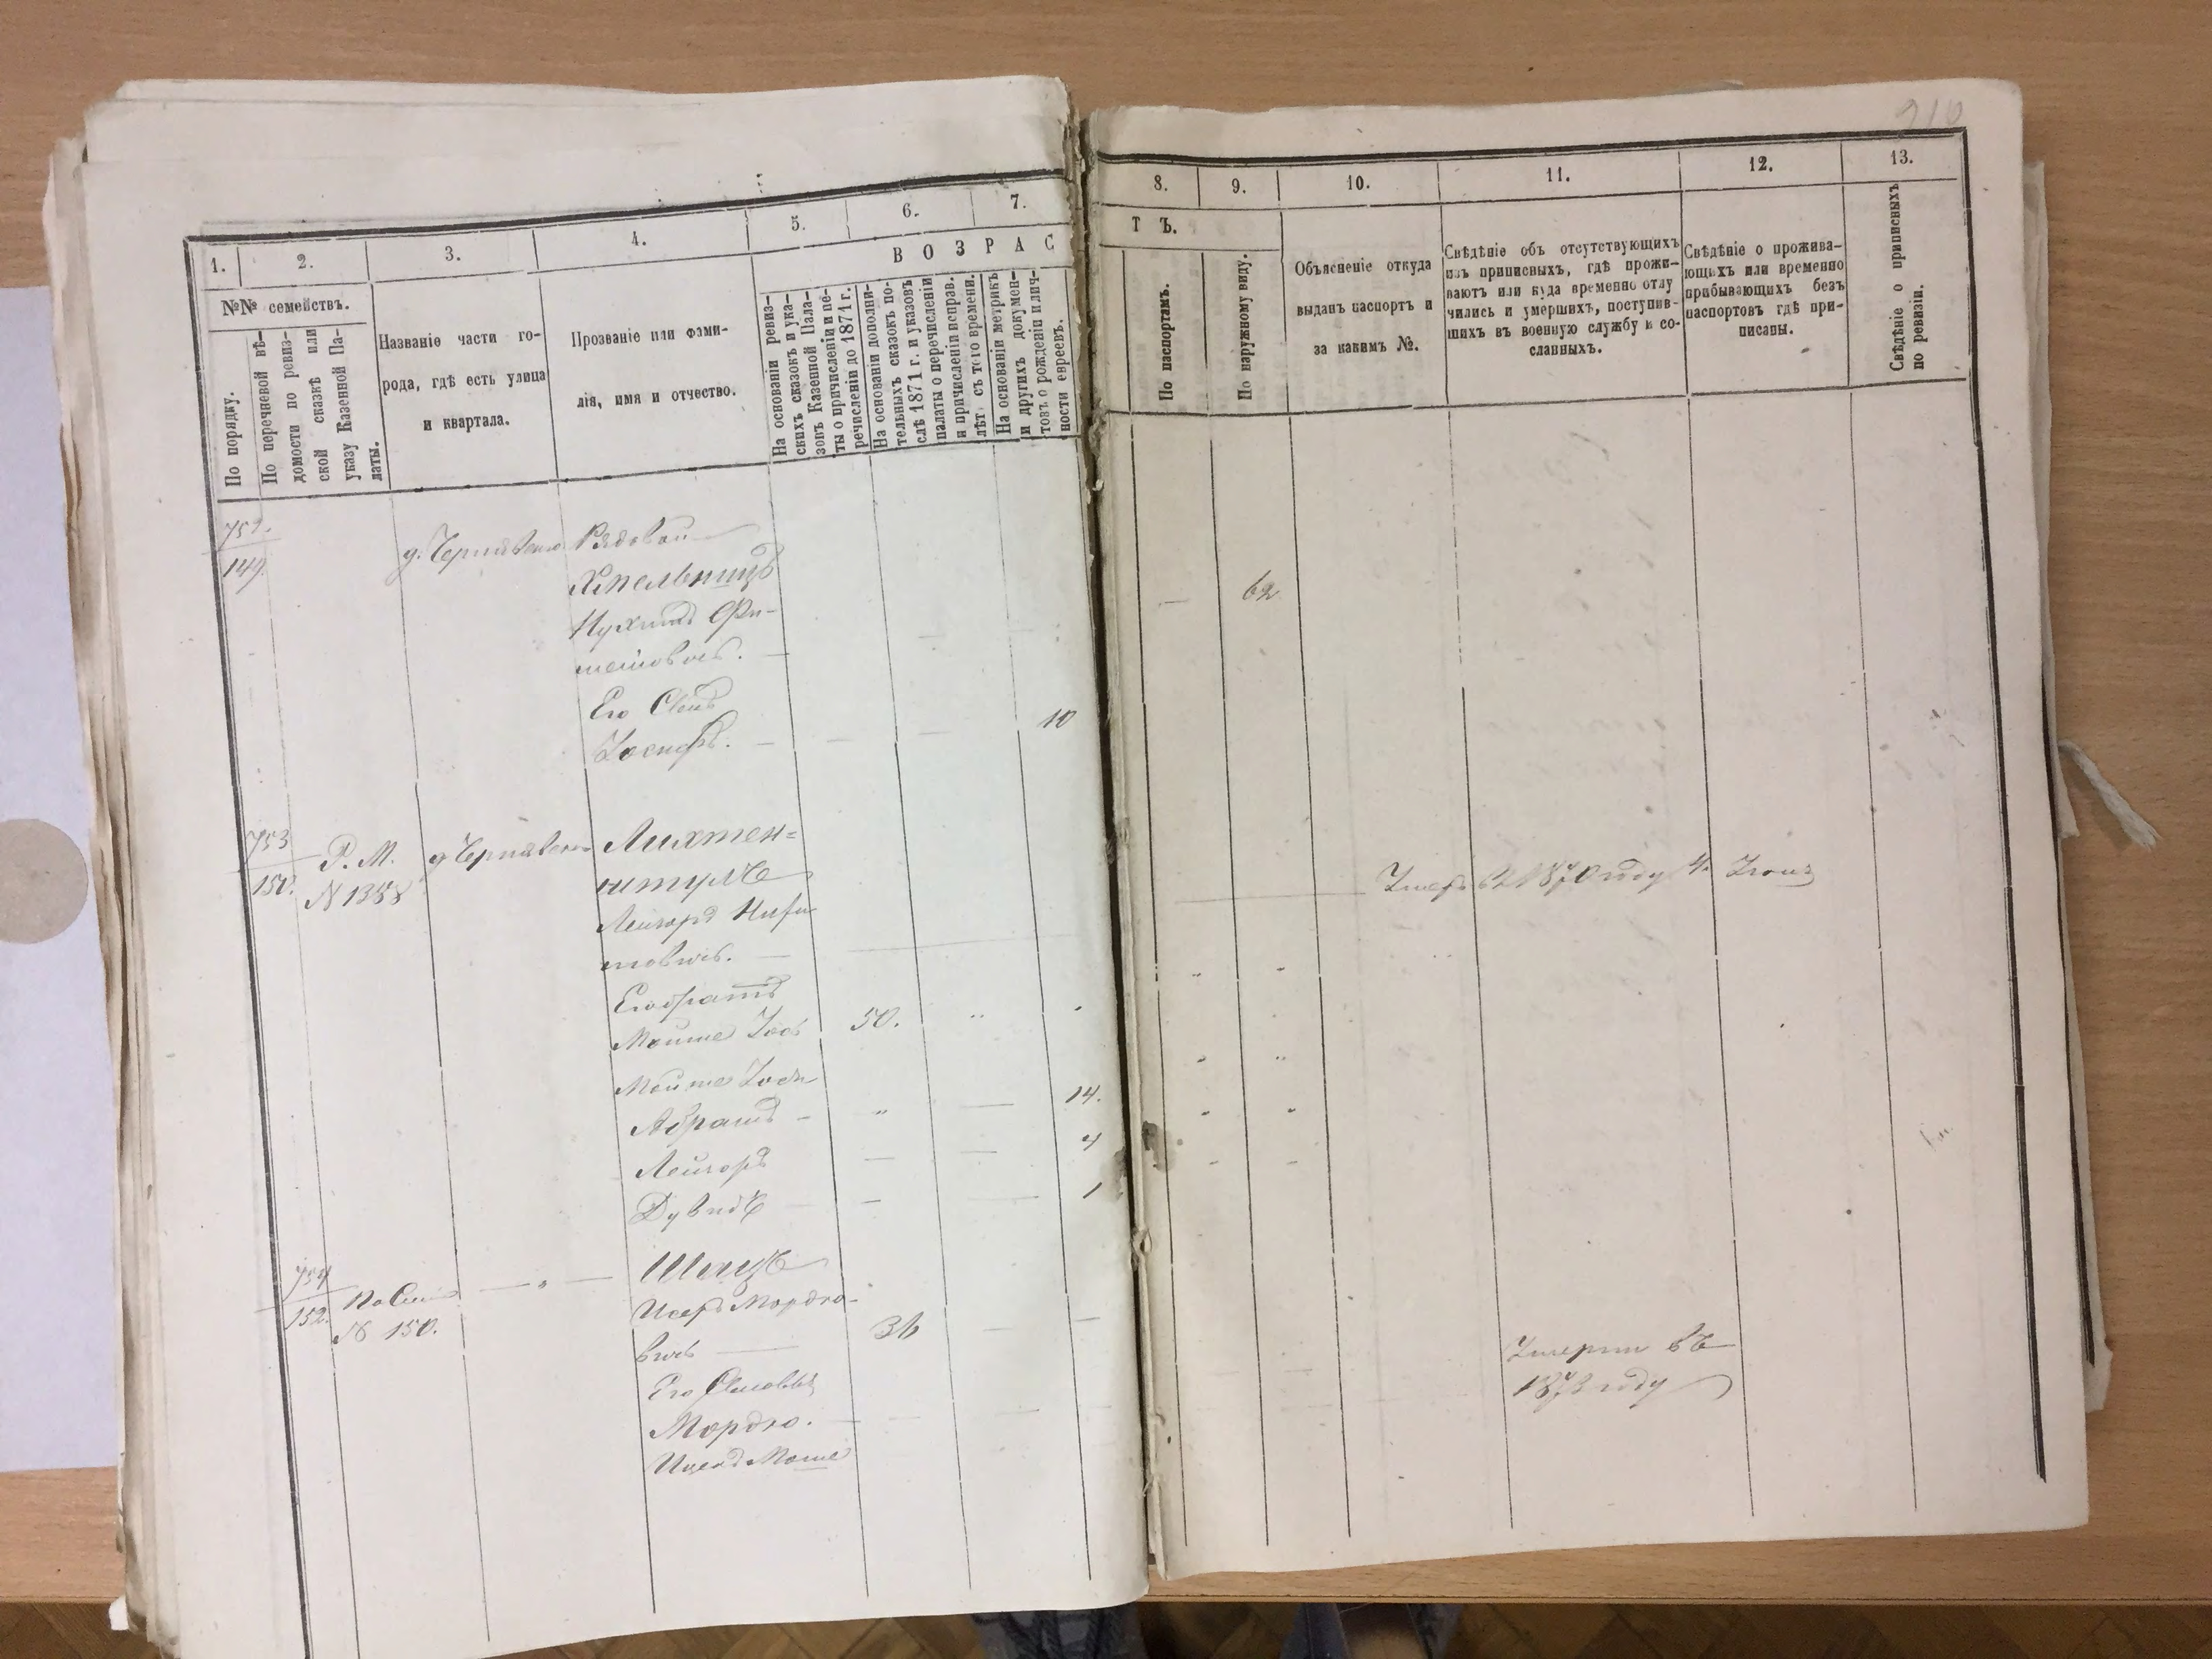 910
1.
2.
3.
4.
5.
6.
7.
8.
9.
10.
11.
12.
13.
№№ семействъ.
По порядку.
По перечневой вѣ-
домости по ревиз-
ской сказкѣ или
указу Казенной Па-
латы.
Названіе части го-
рода, гдѣ есть улица
и квартала.
Прозваніе или фами-
лія, имя и отчество.
ВОЗРАС
ТЪ.
На основаніи ревиз-
скихъ сказокъ и ука-
зовъ Казенной Пала-
ты о причисленіи и пе-
речисленіи до 1871 г.
На основаніи дополни-
тельныхъ сказокъ по-
слѣ 1871 г. и указовъ
палаты о перечисленіи
и причисленіи исправ.
лѣт. съ того времени.
На основаніи метрикъ
и другихъ докумен-
товъ о рожденіи и лич-
ности евреевъ.
По паспортамъ.
По наружному виду.
Объясненіе откуда
выданъ паспортъ и
за какимъ №.
Свѣдѣніе объ отсутствующихъ
изъ приписныхъ, гдѣ прожи-
ваютъ или куда временно отлу
чились и умершихъ, поступив-
шихъ въ военную службу и со-
сланныхъ.
Свѣдѣніе о прожива-
ющихъ или временно
прибывающихъ безъ
паспортовъ гдѣ при-
писаны.
Свѣдѣніе о приписныхъ
по ревизіи.
149.
Рядовой
Хмельницъ
62
Его Сынъ
Іосифъ. 10
753
150.
Р. М.
N 1358
Лихтен=
штулъ
Лейзоръ
товичъ.
Умеръ въ 1870 году 4
Его братъ
Мойше Іось 50.
Мойше
Абрамъ 14.
Лейзоръ 4
Дувидъ 1
754
152.
№ 150.
Шацъ
Исеръ Мордко-
вичъ 36
Умерли въ
1873 году
Его Сыновья
Мордко.
Ицекъ Моше